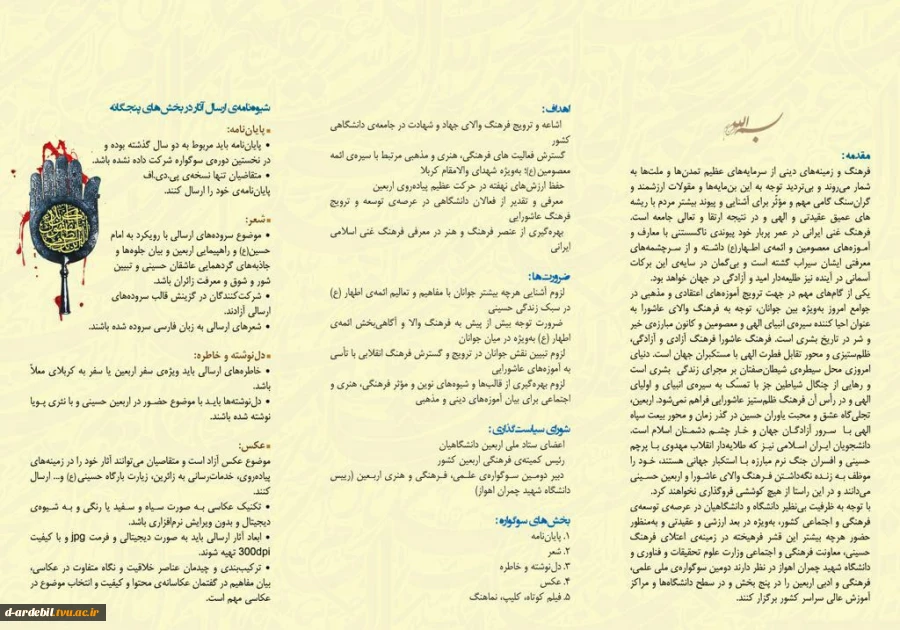 بسم الله
مقدمه:
فرهنگ و زمینه‌های دینی از سرمایه‌های عظیم تمدن‌ها و ملت‌ها به
شمار می‌روند و بی‌تردید توجه به این بن‌مایه‌ها و مقولات ارزشمند و
گران‌سنگ گامی مهم و مؤثر برای آشنایی و پیوند بیشتر مردم با ریشه
های عمیق عقیدتی و الهی و در نتیجه ارتقا و تعالی جامعه است.
فرهنگ غنی ایرانی در عمر پربار خود پیوندی ناگسستنی با معارف و
آموزه‌های معصومین و ائمه‌ی اطهار(ع) داشته و از سرچشمه‌های
معرفتی ایشان سیراب گشته است و بی‌گمان در سایه‌ی این برکات
آسمانی در آینده نیز طلیعه‌دار امید و آزادگی در جهان خواهد بود.
یکی از گام‌های مهم در جهت ترویج آموزه‌های اعتقادی و مذهبی در
جوامع امروز به‌ویژه بین جوانان، توجه به فرهنگ والای عاشورا به
عنوان احیا کننده سیره‌ی انبیای الهی و معصومین و کانون مبارزه‌ی خیر
و شر در تاریخ بشری است. فرهنگ عاشورا فرهنگ آزادی و آزادگی،
ظلم‌ستیزی و محور تقابل فطرت الهی با مستکبران جهان است. دنیای
امروزی محل سیطره‌ی شیطان‌صفتان بر مجرای زندگی بشری است
و رهایی از چنگال شیاطین جز با تمسک به سیره‌ی انبیای و اولیای
الهی و در رأس آن فرهنگ ظلم‌ستیز عاشورایی فراهم نمی‌شود. اربعین،
تجلی‌گاه عشق و محبت یاوران حسین در گذر زمان و محور بیعت سپاه
الهی با سرور آزادگان جهان و خار چشم دشمنان اسلام است.
دانشجویان ایران اسلامی نیز که طلایه‌دار انقلاب مهدوی با پرچم
حسینی و افسران جنگ نرم مبارزه با استکبار جهانی هستند، خود را
موظف به زنده نگه‌داشتن فرهنگ والای عاشورا و اربعین حسینی
می‌دانند و در این راستا از هیچ کوششی فروگذاری نخواهند کرد.
با توجه به ظرفیت بی‌نظیر دانشگاه و دانشگاهیان در عرصه‌ی توسعه‌ی
فرهنگی و اجتماعی کشور، به‌ویژه در بعد ارزشی و عقیدتی و به‌منظور
حضور هرچه بیشتر این قشر فرهیخته در زمینه‌ی اعتلای فرهنگ
حسینی، معاونت فرهنگی و اجتماعی وزارت علوم تحقیقات و فناوری و
دانشگاه شهید چمران اهواز در نظر دارند دومین سوگواره‌ی ملی علمی،
فرهنگی و ادبی اربعین را در پنج بخش و در سطح دانشگاه‌ها و مراکز
آموزش عالی سراسر کشور برگزار کنند.
اهداف:
اشاعه و ترویج فرهنگ والای جهاد و شهادت در جامعه‌ی دانشگاهی
کشور
گسترش فعالیت های فرهنگی، هنری و مذهبی مرتبط با سیره‌ی ائمه
معصومین (ع)؛ به‌ویژه شهدای والامقام کربلا
حفظ ارزش‌های نهفته در حرکت عظیم پیاده‌روی اربعین
معرفی و تقدیر از فعالان دانشگاهی در عرصه‌ی توسعه و ترویج
فرهنگ عاشورایی
بهره‌گیری از عنصر فرهنگ و هنر در معرفی فرهنگ غنی اسلامی
ایرانی
ضرورت‌ها:
لزوم آشنایی هرچه بیشتر جوانان با مفاهیم و تعالیم ائمه‌ی اطهار (ع)
در سبک زندگی حسینی
ضرورت توجه بیش از پیش به فرهنگ والا و آگاهی‌بخش ائمه‌ی
اطهار (ع) به‌ویژه در میان جوانان
لزوم تبیین نقش جوانان در ترویج و گسترش فرهنگ انقلابی با تأسی
به آموزه‌های عاشورایی
لزوم بهره‌گیری از قالب‌ها و شیوه‌های نوین و مؤثر فرهنگی، هنری و
اجتماعی برای بیان آموزه‌های دینی و مذهبی
شورای سیاست‌گذاری:
اعضای ستاد ملی اربعین دانشگاهیان
رئیس کمیته‌ی فرهنگی اربعین کشور
دبیر دومین سوگواره‌ی علمی، فرهنگی و هنری اربعین (رییس
دانشگاه شهید چمران اهواز)
بخش‌های سوگواره:
۱. پایان‌نامه
۲. شعر
۳. دل‌نوشته و خاطره
۴. عکس
۵. فیلم کوتاه، کلیپ، نماهنگ
شیوه‌نامه‌ی ارسال آثار در بخش‌های پنجگانه
▪ پایان‌نامه:
• پایان‌نامه باید مربوط به دو سال گذشته بوده و
در نخستین دوره‌ی سوگواره شرکت داده نشده باشد.
• متقاضیان تنها نسخه‌ی پی.دی.اف
پایان‌نامه‌ی خود را ارسال کنند.
▪ شعر:
• موضوع سروده‌های ارسالی با رویکرد به امام
حسین(ع) و راهپیمایی اربعین و بیان جلوه‌ها و
جاذبه‌های گردهمایی عاشقان حسینی و تبیین
شور و شوق و معرفت زائران باشد.
• شرکت‌کنندگان در گزینش قالب سروده‌های
ارسالی آزادند.
• شعرهای ارسالی به زبان فارسی سروده شده باشند.
▪ دل‌نوشته و خاطره:
• خاطره‌های ارسالی باید ویژه‌ی سفر اربعین یا سفر به کربلای معلاّ
باشد.
• دل‌نوشته‌ها باید با موضوع حضور در اربعین حسینی و با نثری پویا
نوشته شده باشند.
▪ عکس:
موضوع عکس آزاد است و متقاضیان می‌توانند آثار خود را در زمینه‌های
پیاده‌روی، خدمات‌رسانی به زائرین، زیارت بارگاه حسینی (ع) و... ارسال
کنند.
• تکنیک عکاسی به صورت سیاه و سفید یا رنگی و به شیوه‌ی
دیجیتال و بدون ویرایش نرم‌افزاری باشد.
• ابعاد آثار ارسالی باید به صورت دیجیتالی و فرمت jpg و با کیفیت
300dpi تهیه شوند.
• ترکیب‌بندی و چیدمان عناصر خلاقیت و نگاه متفاوت در عکاسی،
بیان مفاهیم در گفتمان عکاسانه‌ی محتوا و کیفیت و انتخاب موضوع در
عکاسی مهم است.
d-ardebil.tvu.ac.ir